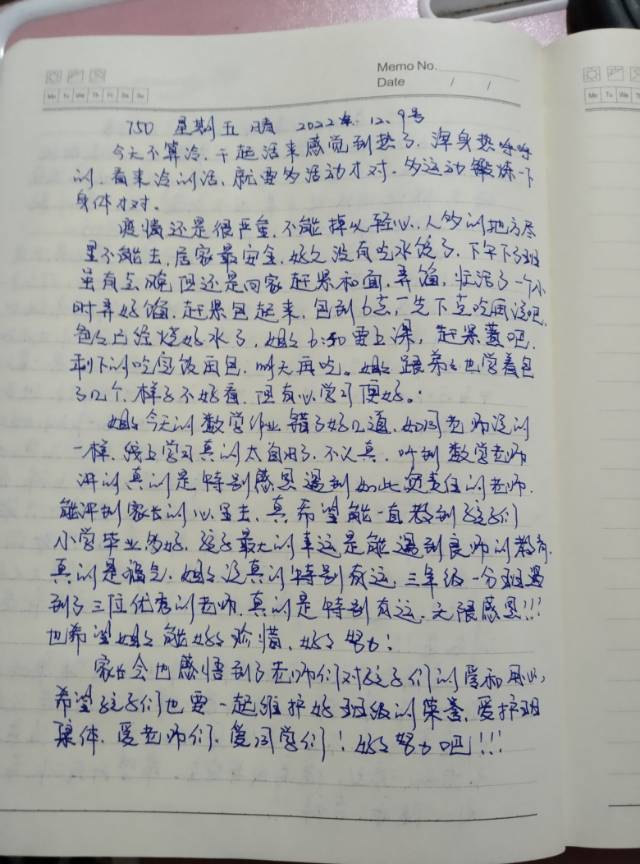 Memo No.
Date / /
Mo Tu We Th Fr Sa Su
750 星期五 晴 2022年.12.9号
今天不算冷,干起活来感觉到热了,浑身热呼呼
的,看来冷的话,就要多活动才对,多运动锻炼一下
身体才对。
疫情还是很严重,不能掉以轻心,人多的地方尽
量不能去,居家最安全,好久没有吃水饺了,下午下了班
虽有点晚,但还是回家赶紧和面,弄馅,忙活了一个小
时弄好馅,赶紧包起来,包到6点,先下点吃再说吧,
爸爸已经烧好水了,姐姐6:30要上课,赶紧煮吧,
剩下的吃完饭再包,明天再吃。姐姐跟弟弟也学着包
了几个,样子不好看,但有心学习便好。
姐姐今天的数学作业错了好几道,如同老师说的
一样,线上学习真的太自由了,不认真,听到数学老师
讲的真的是特别感恩遇到如此负责任的老师,
能讲到家长的心里去,真希望能一直教到孩子们
小学毕业多好,孩子最大的幸运是能遇到良师的教育,
真的是福气,姐姐说真的特别幸运,三年级一分班遇
到了三位优秀的老师,真的是特别幸运,无限感恩!!!
也希望姐姐能好好珍惜,好好努力!
家长会也感悟到了老师们对孩子们的爱和用心,
希望孩子们也要一起维护好班级的荣誉,爱护班
集体,爱老师们,爱同学们!好好努力吧!!!